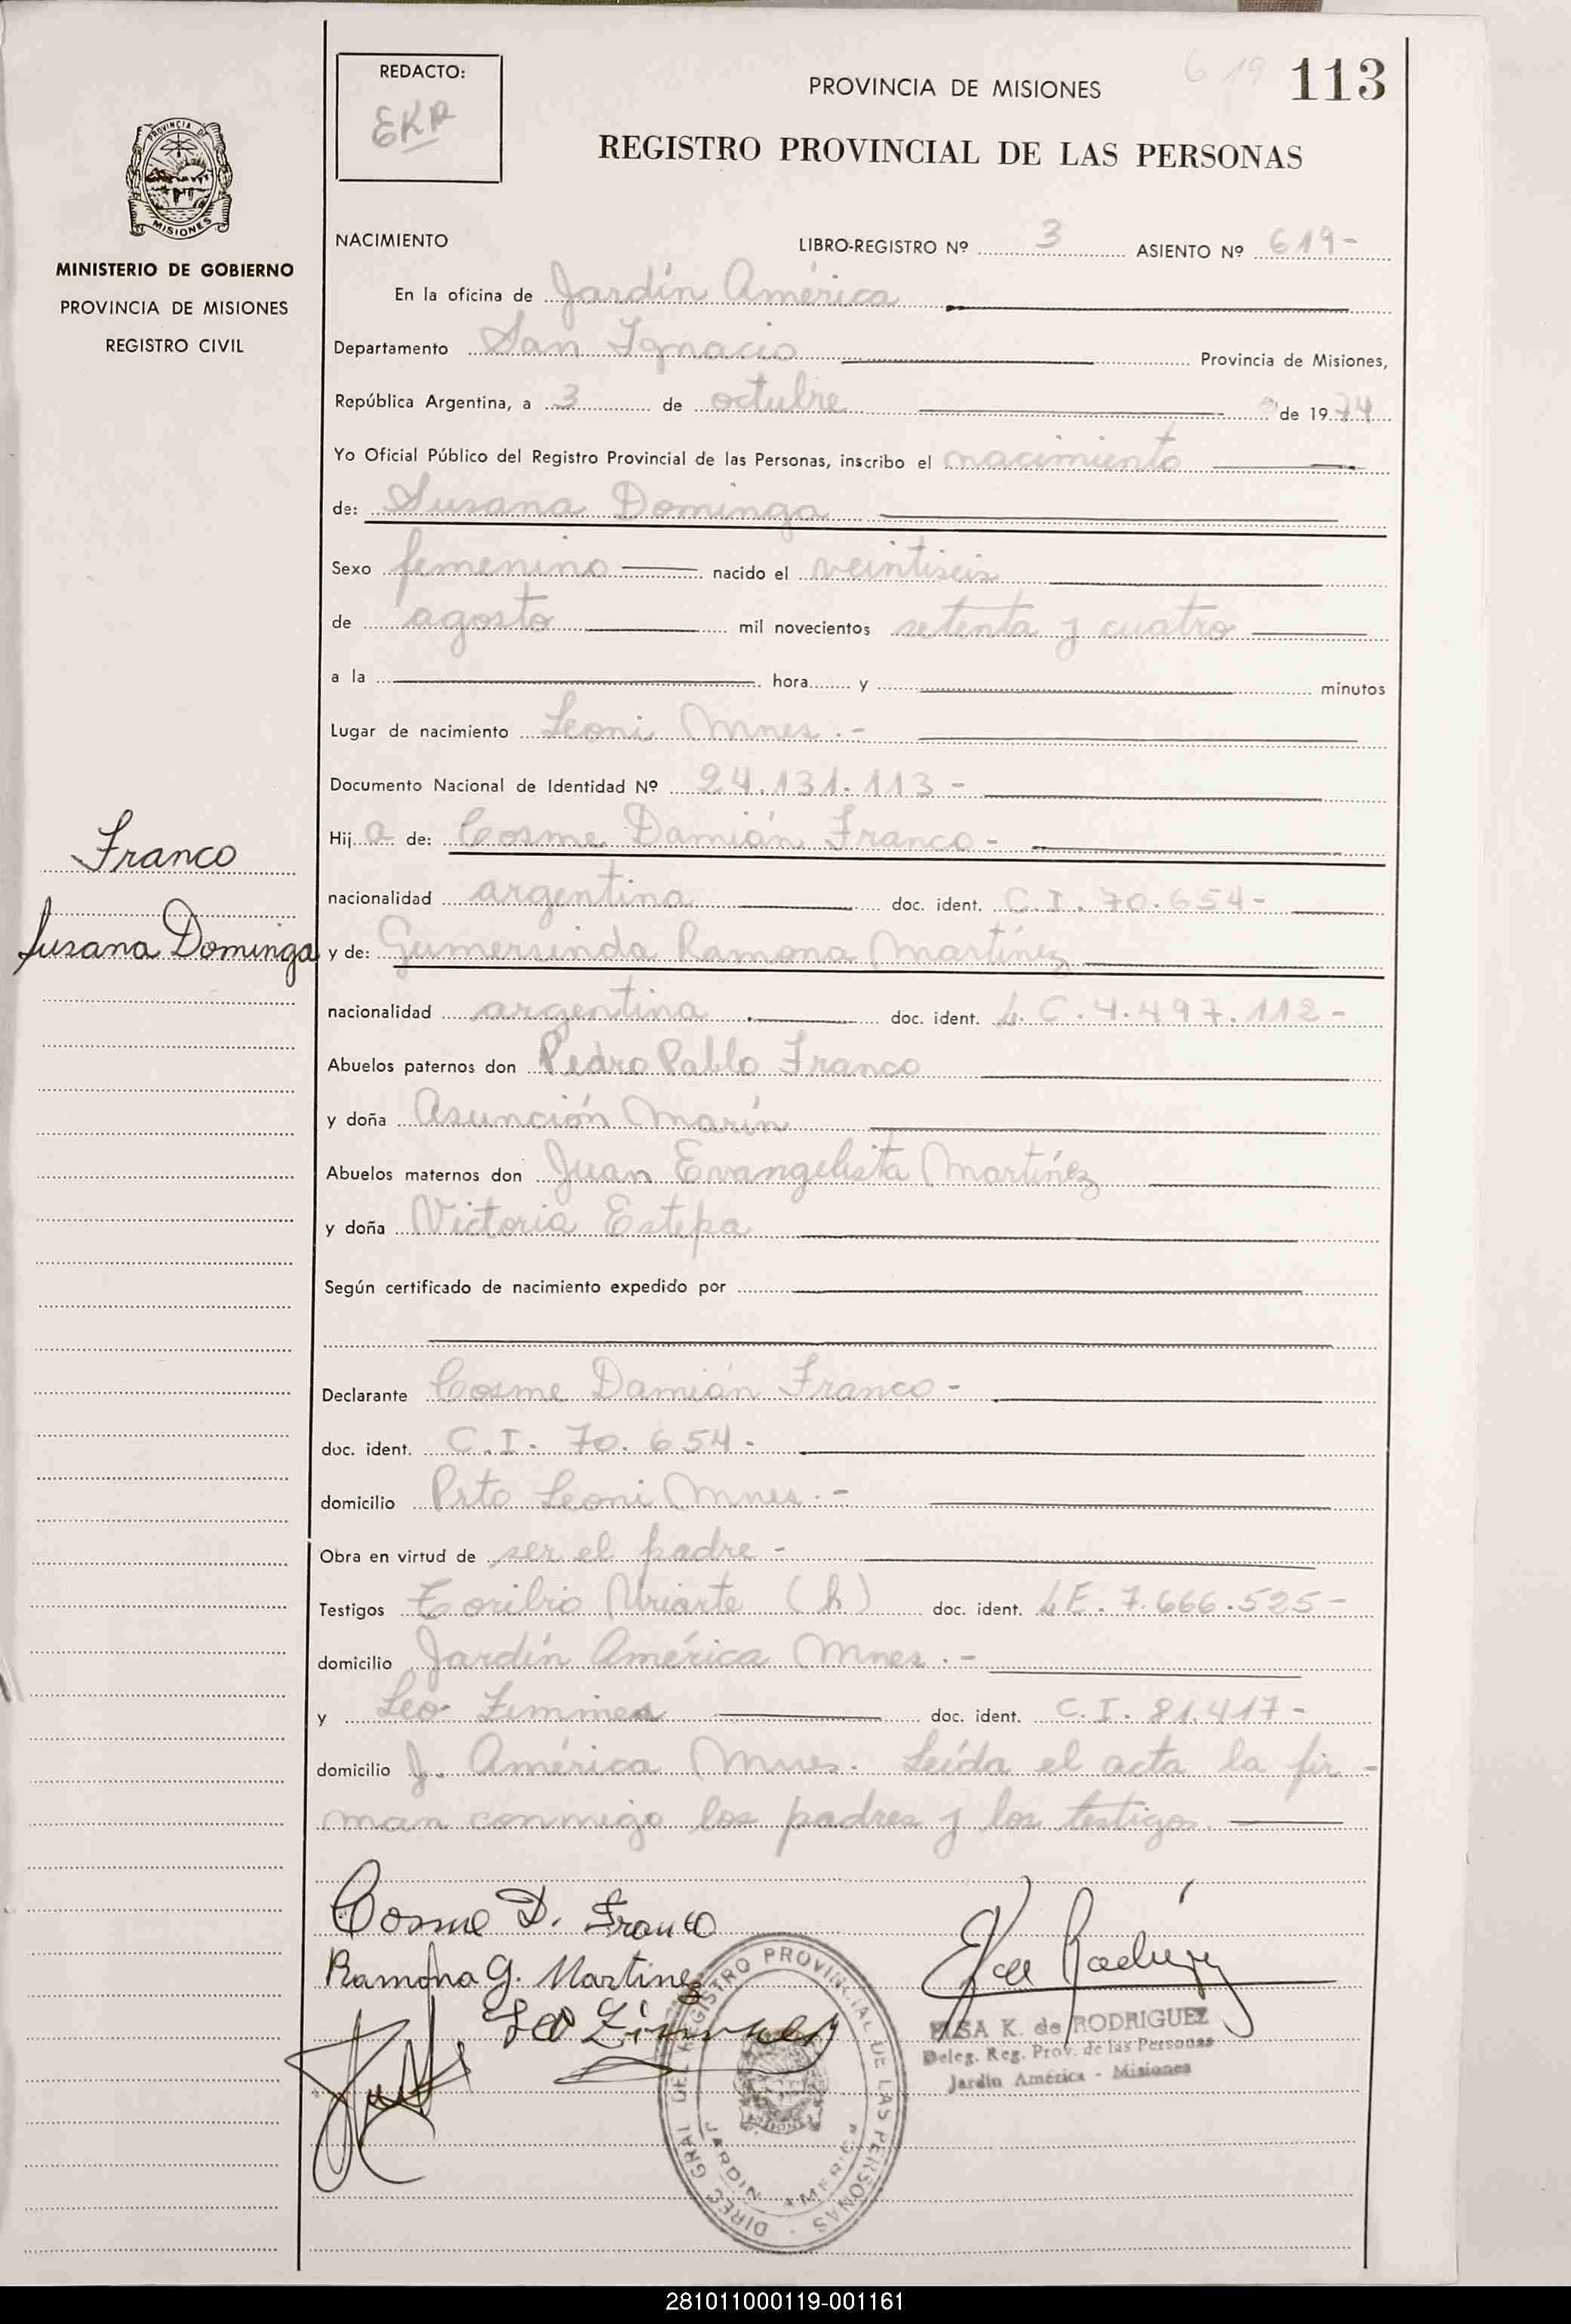 REDACTO:
EKR
PROVINCIA DE MISIONES
619
113
REGISTRO PROVINCIAL DE LAS PERSONAS
PROVINCIA DE
MISIONES
MINISTERIO DE GOBIERNO
PROVINCIA DE MISIONES
REGISTRO CIVIL
NACIMIENTO LIBRO-REGISTRO Nº 3 ASIENTO Nº 619-
En la oficina de Jardín América
Departamento San Ignacio Provincia de Misiones,
República Argentina, a 3 de octubre de 1974
Yo Oficial Público del Registro Provincial de las Personas, inscribo el nacimiento
de: Susana Dominga
Sexo femenino nacido el veintiseis
de agosto mil novecientos setenta y cuatro
a la hora y minutos
Lugar de nacimiento Leoni Mnes.-
Documento Nacional de Identidad Nº 24.131.113-
Hij a de: Cosme Damián Franco-
nacionalidad argentina doc. ident. C.I. 70.654-
Franco
Susana Dominga
y de: Gumersinda Ramona Martínez
nacionalidad argentina doc. ident. L.C. 4.497.112-
Abuelos paternos don Pedro Pablo Franco
y doña Asunción Marín
Abuelos maternos don Juan Evangelista Martínez
y doña Victoria Estepa
Según certificado de nacimiento expedido por
Declarante Cosme Damián Franco-
doc. ident. C.I. 70.654.
domicilio Prto Leoni Mnes.-
Obra en virtud de ser el padre-
Testigos Toribio Uriarte (h) doc. ident. L.E. 7.666.525-
domicilio Jardín América Mnes.-
y Leo Zimmer doc. ident. C.I. 81.417-
domicilio J. América Mnes. Leída el acta la fir-
man conmigo los padres y los testigos.
Cosme D. Franco
Ramona G. Martinez
Leo Zimmer
ELSA K. de RODRIGUEZ
Deleg. Reg. Prov. de las Personas
Jardín América - Misiones
DIREC. GRAL. DEL REGISTRO PROVINCIAL DE LAS PERSONAS
JARDIN AMERICA
281011000119-001161